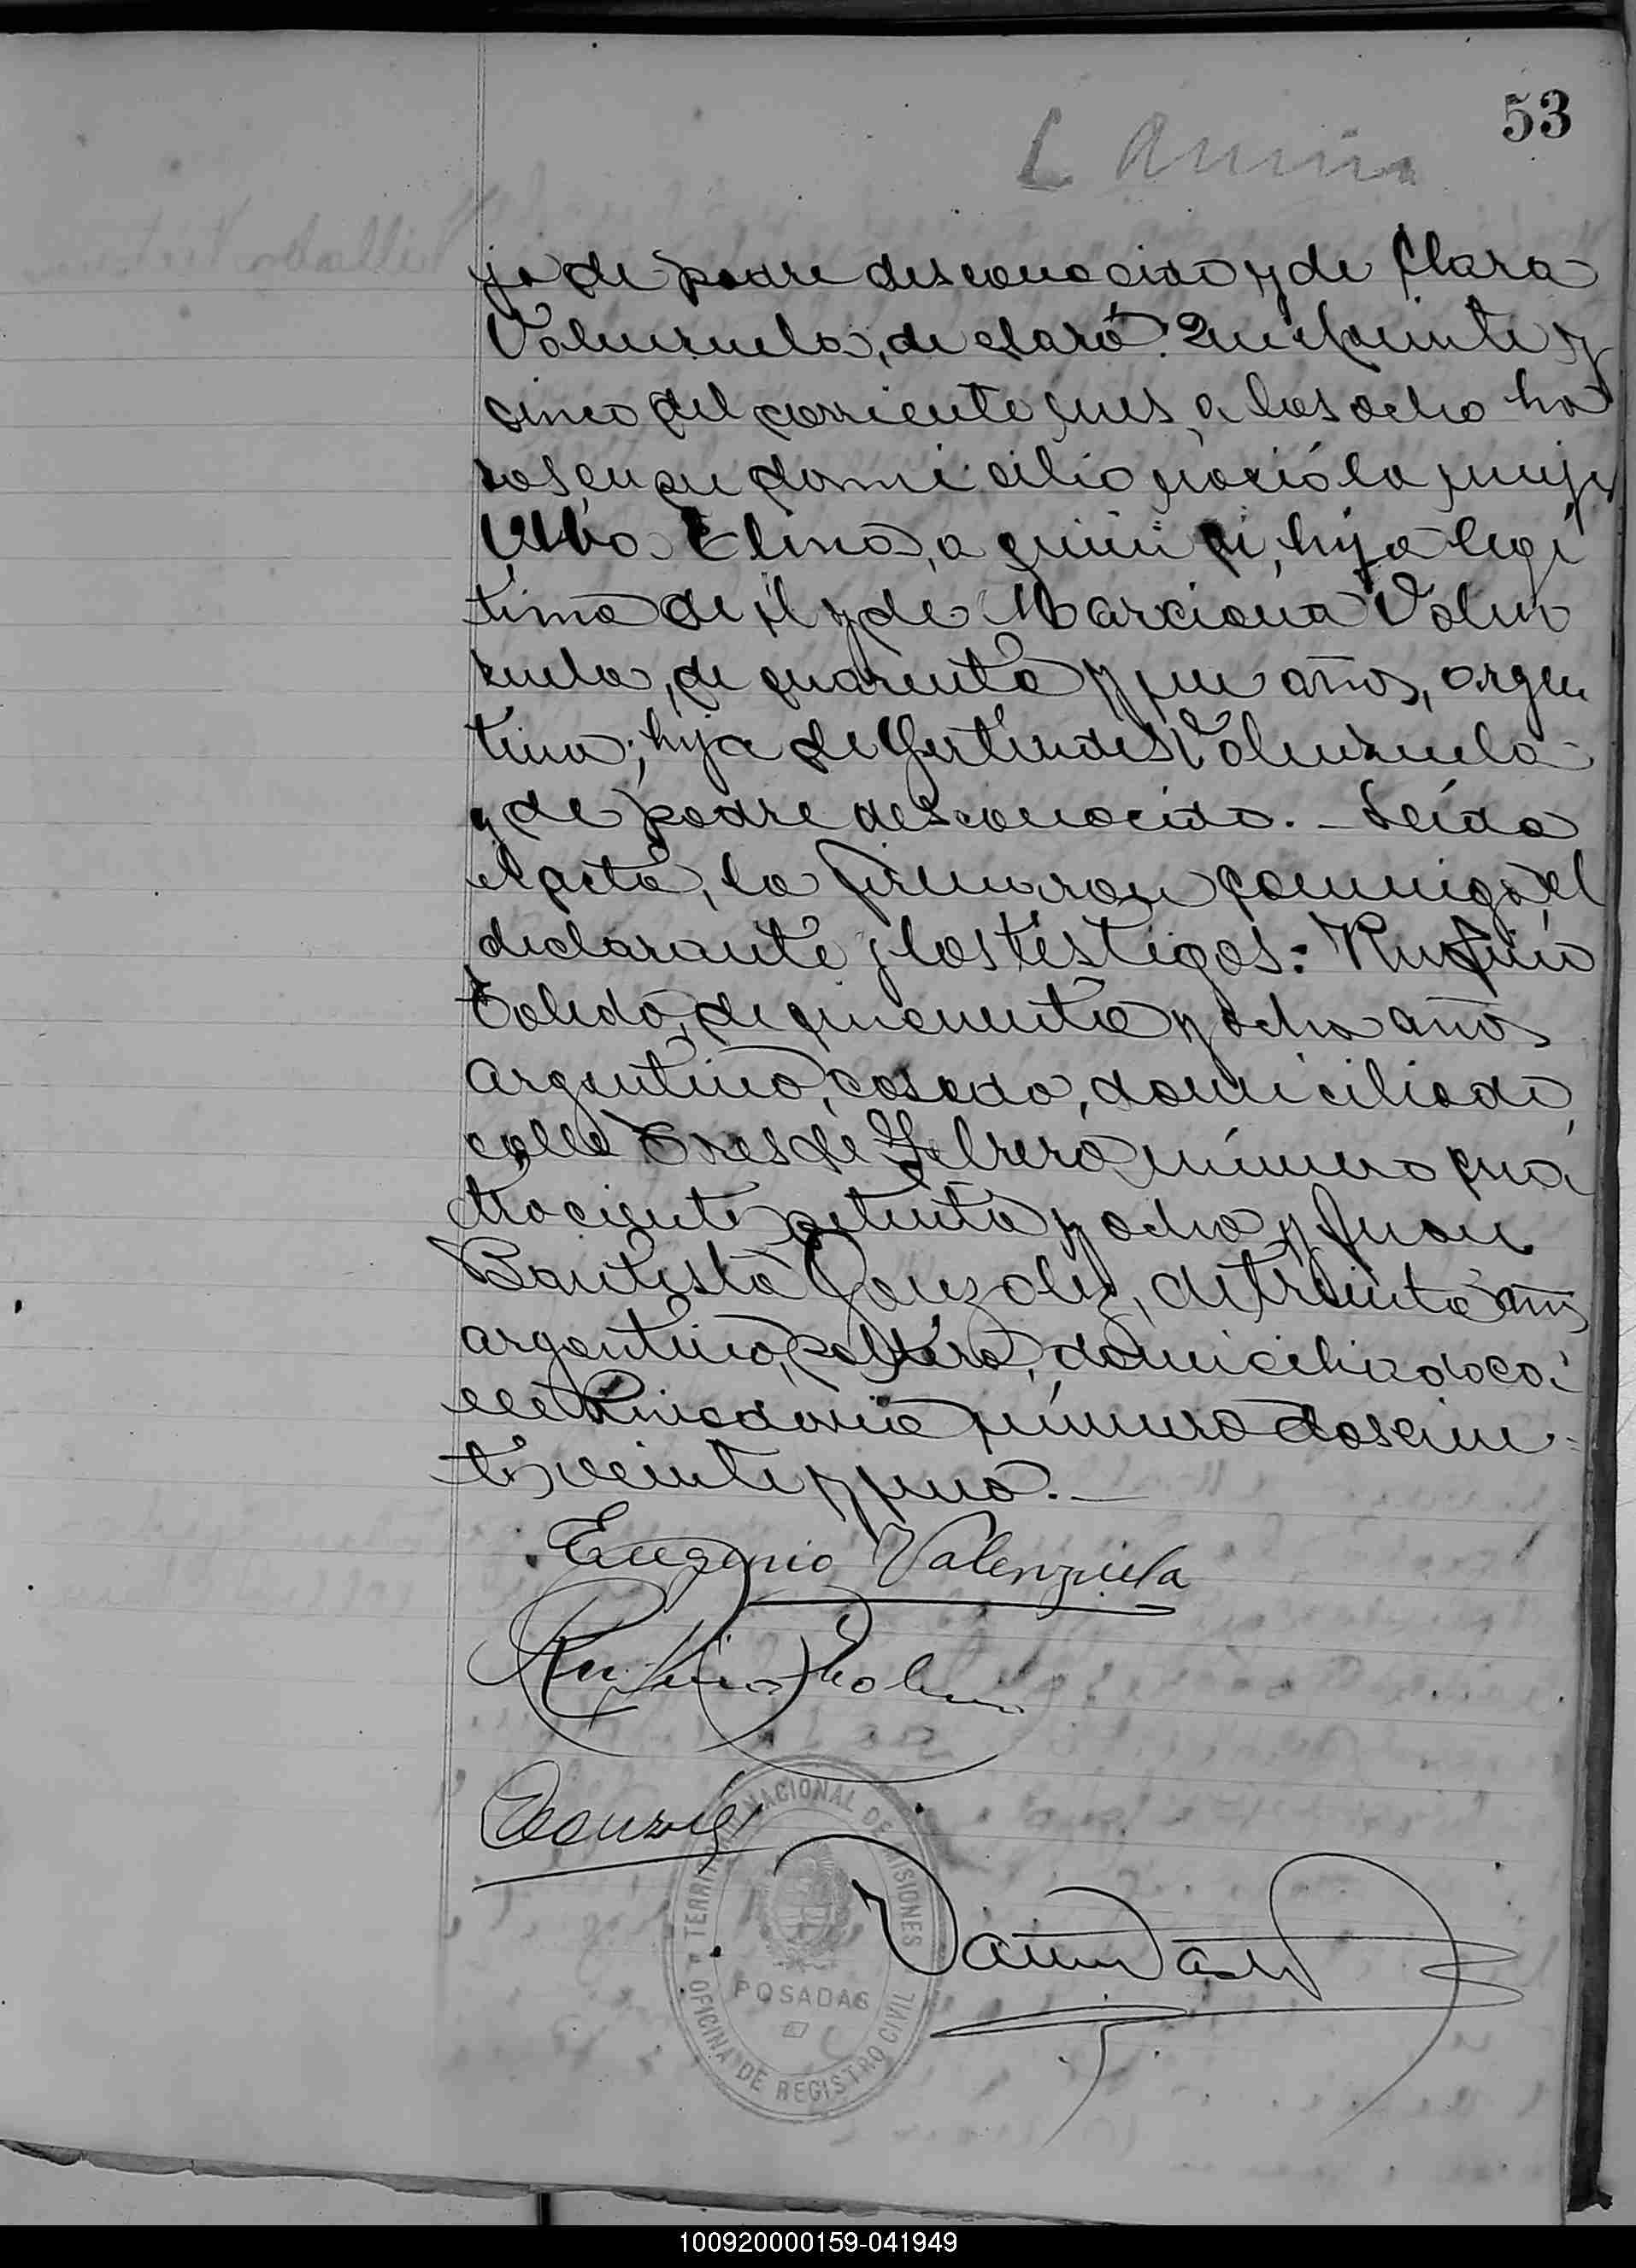 53
jo de padre desconocido y de Clara
Valenzuela, declaró: Que el veinte y
cinco del corriente mes, a las ocho ho
ras, en su domicilio nació la mujer
Elina, a quien vi, hija legi
tima de él y de Marciana Valen
zuela, de cuarenta y un años, argen
tina; hija de Gertrudes Valenzuela
y de padre desconocido. - Leída
el acta, la firmaron conmigo, el
declarante y los testigos: Rufino
Toledo, de cincuenta y ocho años
argentino, casado, domiciliado
calle Tres de Febrero número cua
trociento setenta y ocho y Juan
Bautista Gonzalez, de treinta años
argentino, soltero, domiciliado ca
lle Rivadavia número doscien-
tos veinte y uno. -
Eugenio Valenzuela
Rufino Toledo
Gonzalez
TERRITORIO NACIONAL DE MISIONES
POSADAS
OFICINA DE REGISTRO CIVIL
100920000159-041949